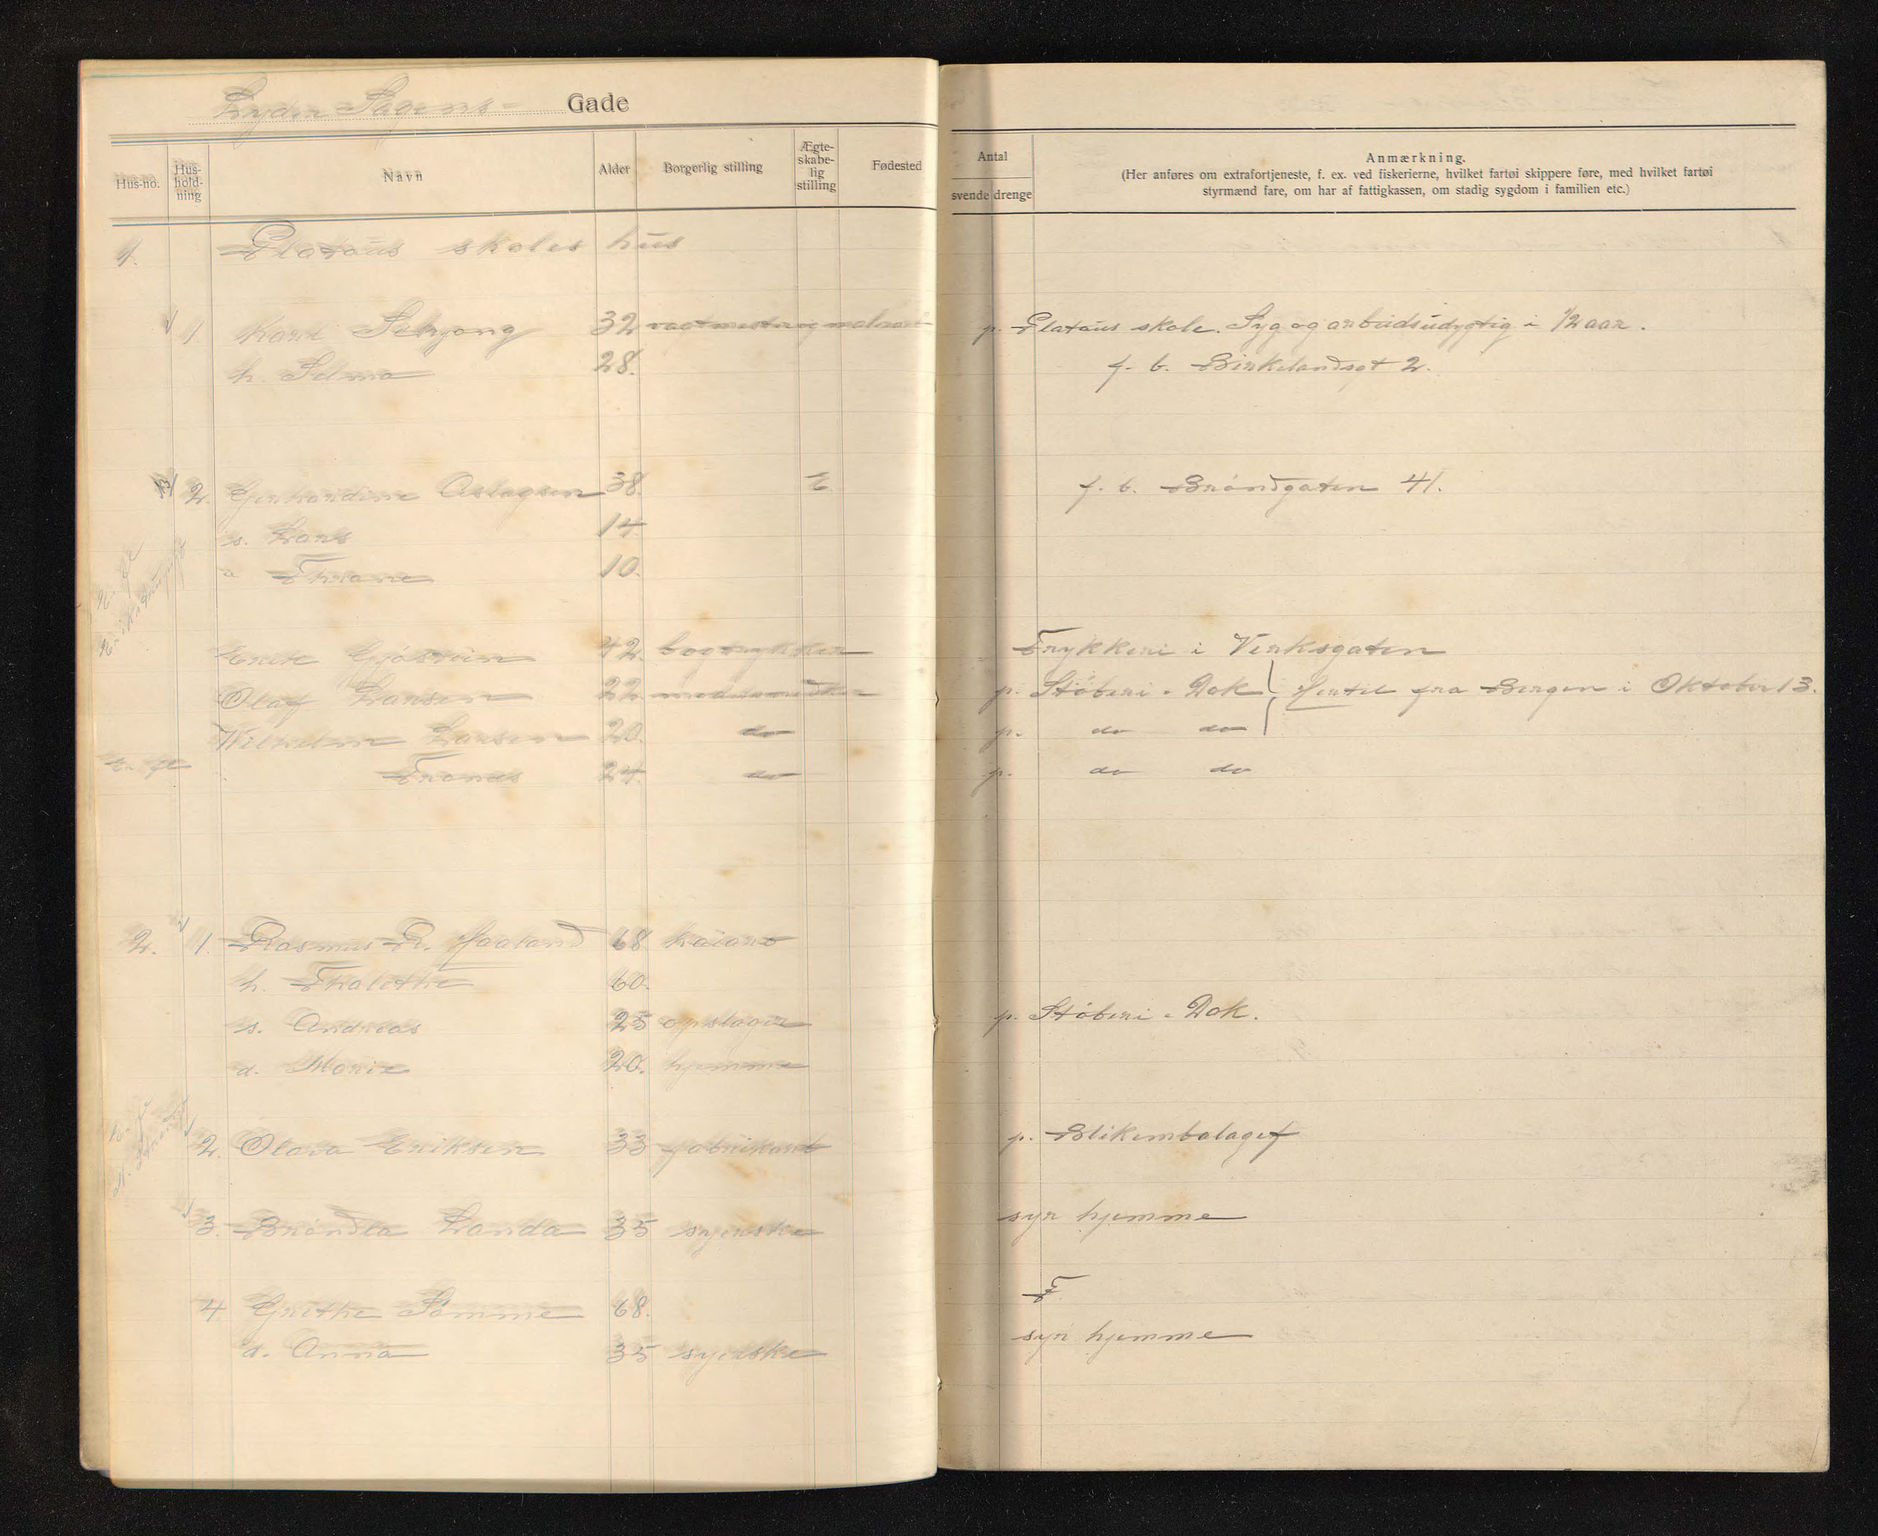 Lyder Sagens- Gade
Hus-no. Hus-hold-ning Navn Alder Borgerlig stilling Ægte-skabe-lig stilling Fødested
Antal svende drenge
Anmærkning.
(Her anføres om extrafortjeneste, f. ex. ved fiskerierne, hvilket fartøi skippere føre, med hvilket fartøi
styrmænd fare, om har af fattigkassen, om stadig sygdom i familien etc.)
1. Platous skoles hus
1. Karl 32 p. Platous skole. Syg og arbeidsudygtig i 1/2 aar.
h. Selma 28. f. b. Birkelandsgt 2.
2. Gerhardine Aslagsen 38. E f. b. Brøndgaten 41.
s. Lars 14
" Thrane 10.
42 bogtrykker Trykkeri i Verksgaten
Olaf Larsen 22 p. Støberi & Dok hertil fra Bergen i Oktober 13.
Wilhelm Larsen 20. do p. do do
Frants 24 do p. do do
2. 1. Rasmus R. Haaland 68
h. Thalethe 60.
s. Andreas 25 opslager p. Støberi & Dok.
d. Marie 20. hjemme
2. Olava Eriksen 33 fabrikarb p. Blikemballagef
3. Brøndla Landa 35 syerske syr hjemme
4. Grethe Sømme 68. F
d. Anna 35 syerske syr hjemme